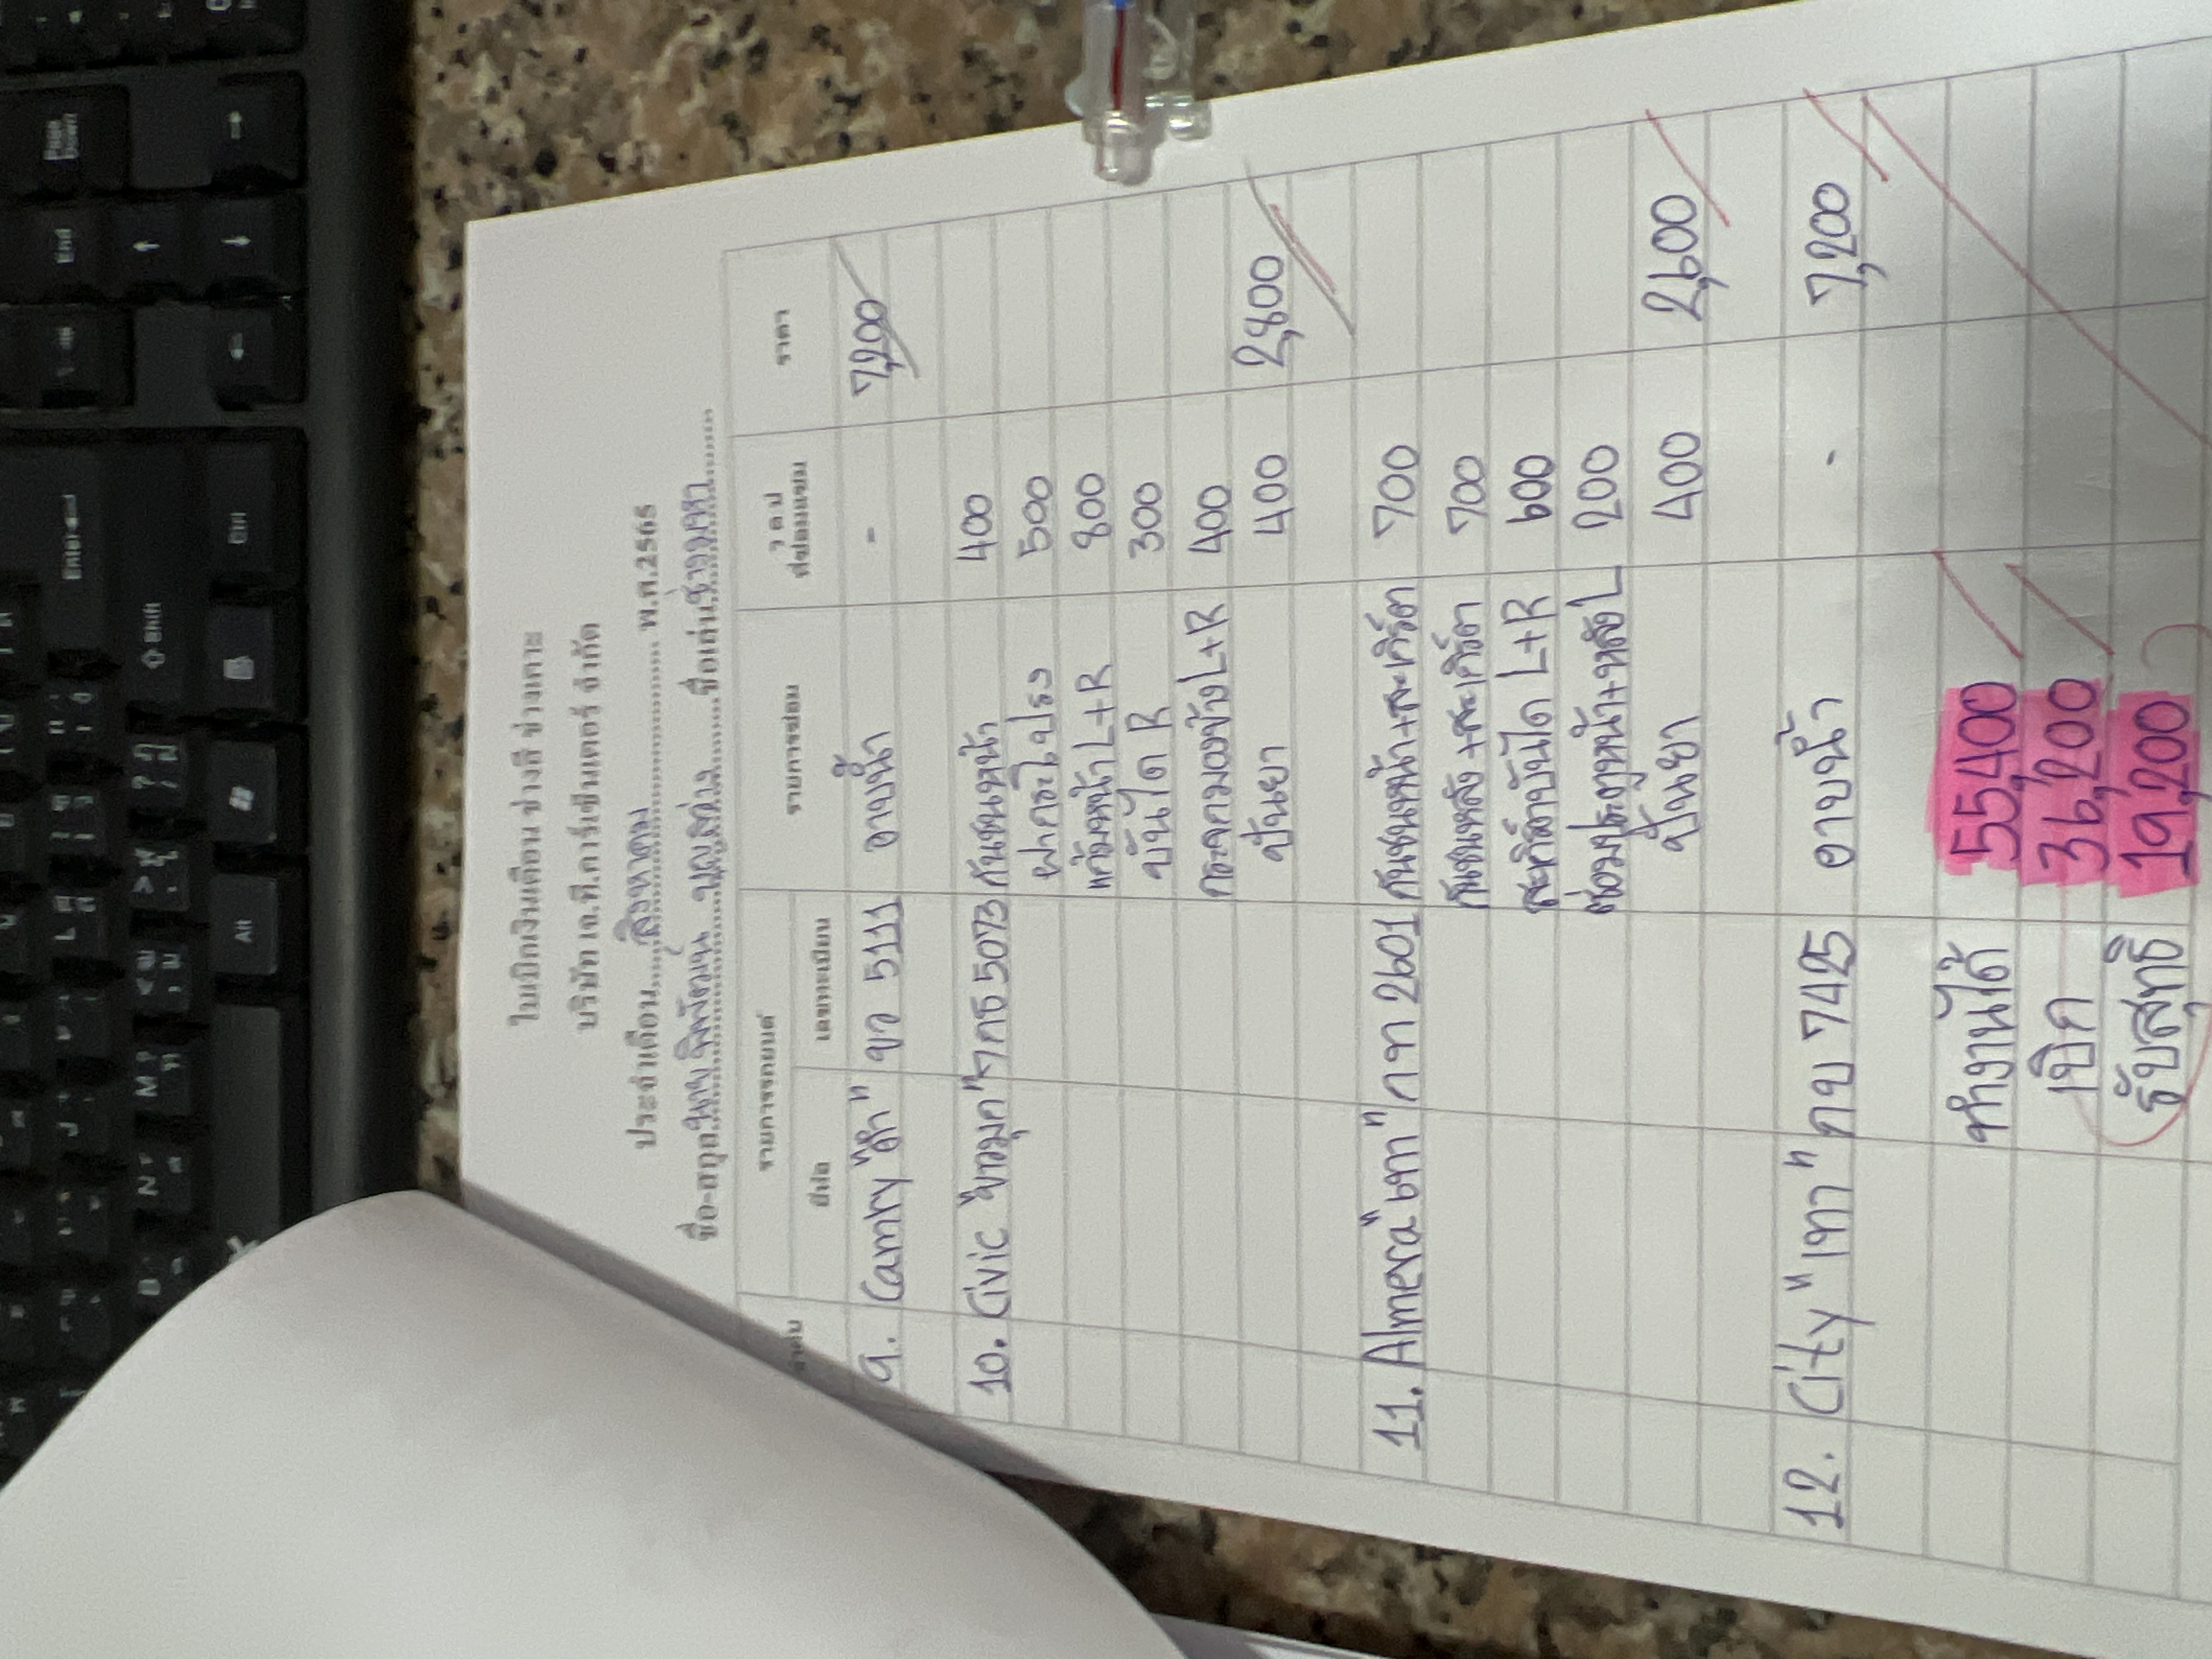 ใบเบิกเงินเดือน ช่างสี ช่างเคาะ
บริษัท เจ.ที.คาร์เซ็นเตอร์ จำกัด
ประจำเดือน....สิงหาคม.... พ.ศ.2565
ชื่อ-สกุล นาย พิพัฒน์ บุญส่ง ชื่อเล่น ช่าง
ลำดับ รายการรถยนต์ รายการซ่อม ราคา
ยี่ห้อ เลขทะเบียน
9. Camry "ดำ" ขว 5111 อาบน้ำ - 7,200
10. Civic "ขาวมุก" 7กธ 5073 กันชนหน้า 400
ฝากระโปรง 500
แก้มหน้า L+R 800
บันได R 300
กระจกมองข้าง L+R 400
ปั่นยา 400 2,800
11. Almera "เทา" กท 2601 กันชนหน้า+สะเกิร์ต 700
กันชนหลัง+สะเกิร์ต 700
สะเกิร์ตบันได L+R 600
ซ่อมประตูหน้า+หลัง L 200
ปั่นยา 400 2,600
12. City "เทา" กบ 7425 อาบน้ำ - 7,200
ทำงานได้ 55,400
เบิก 36,200
รับสุทธิ 19,200
Page Down
End
Enter
Shift
Ctrl
Alt